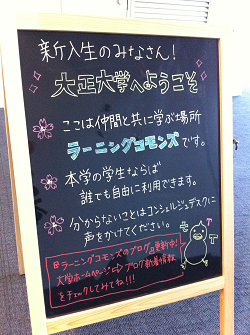 新入生のみなさん!
大正大学へようこそ
ここは仲間と共に学ぶ場所
ラーニングコモンズです。
本学の学生ならば
誰でも自由に利用できます。
分からないことはコンシェルジュデスクに
声をかけてください。
ラーニングコモンズのブログ更新中!
大学ホームページ⇨ブログ新着情報
をチェックしてみてね!!!